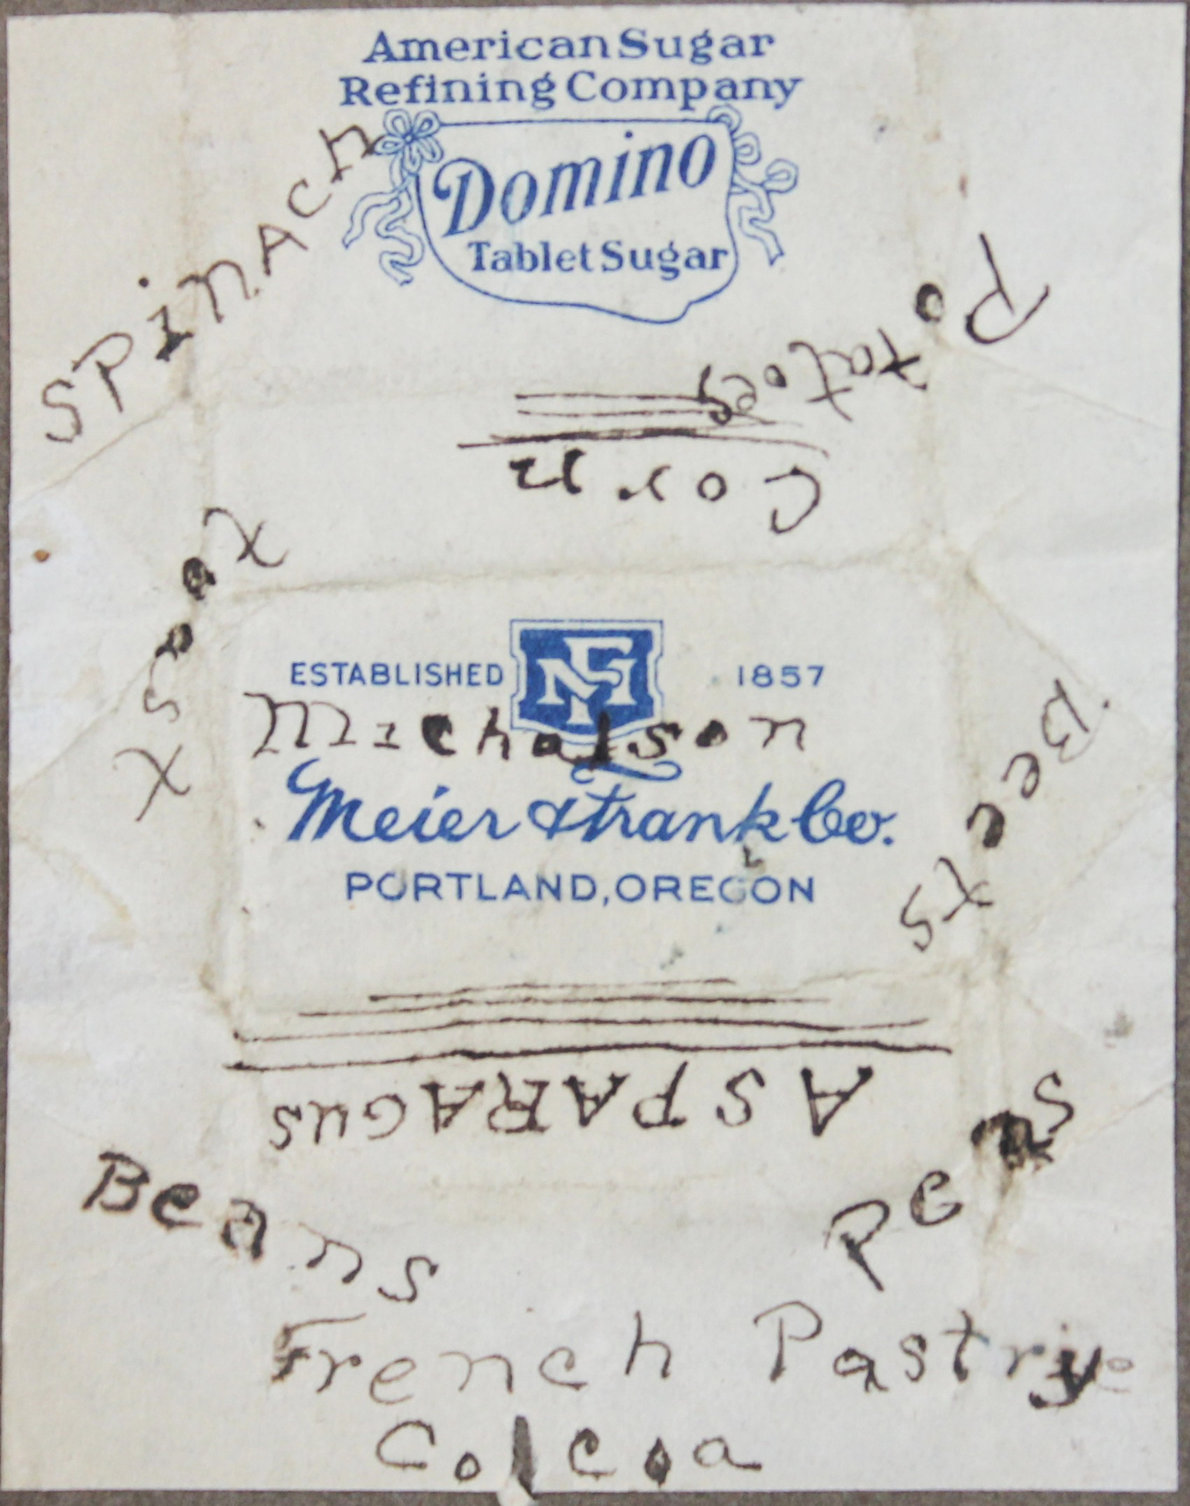 American Sugar
Refining Company
Domino
Tablet Sugar
SPinAch
Potatoes
Corn
Toast
ESTABLISHED 1857
MF
Michalson
Beets
Meier & Frank Co.
PORTLAND, OREGON
ASPARAGUS
Peas
Beans
French Pastry
Colcoa